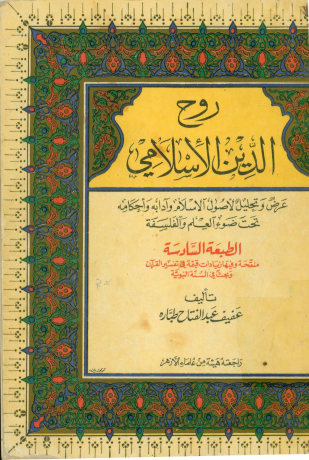 روح
الدين الإسلامي
عرض وتحليل لأصول الإسلام وآدابه وأحكامه
تحت ضوء العلم والفلسفة
الطبعة السادسة
منقحة وفيها زيادات قيمة في تفسير القرآن
وبحث في السنة النبوية
تأليف
عفيف عبد الفتاح طباره
راجعته هيئة من علماء الأزهر